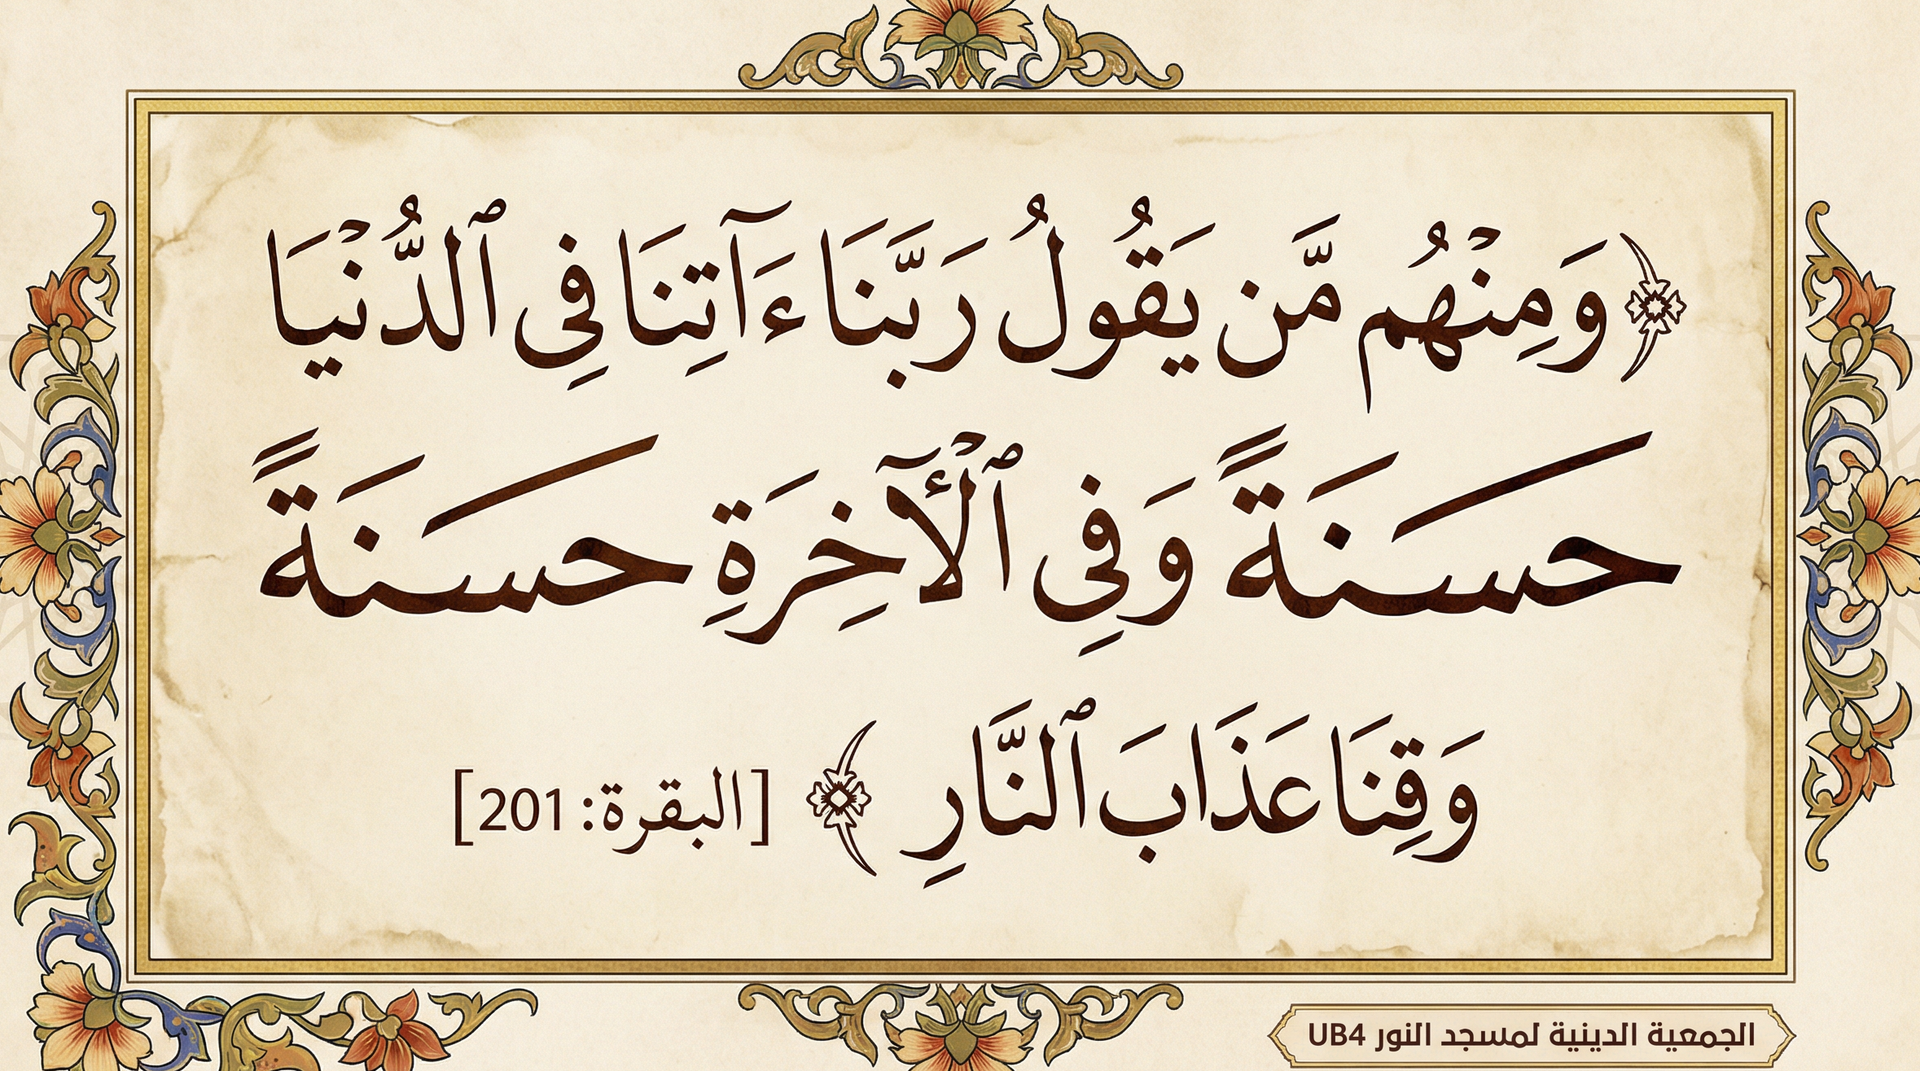 ﴿وَمِنْهُم مَّن يَقُولُ رَبَّنَا ءَآتِنَا فِى ٱلدُّنْيَا
حسَنَةً وَفِى ٱلْأٓخِرَةِ حسَنَةً
وَقِنَا عَذَابَ ٱلنَّارِ ﴾ [البقرة: 201]
الجمعية الدينية لمسجد النور UB4